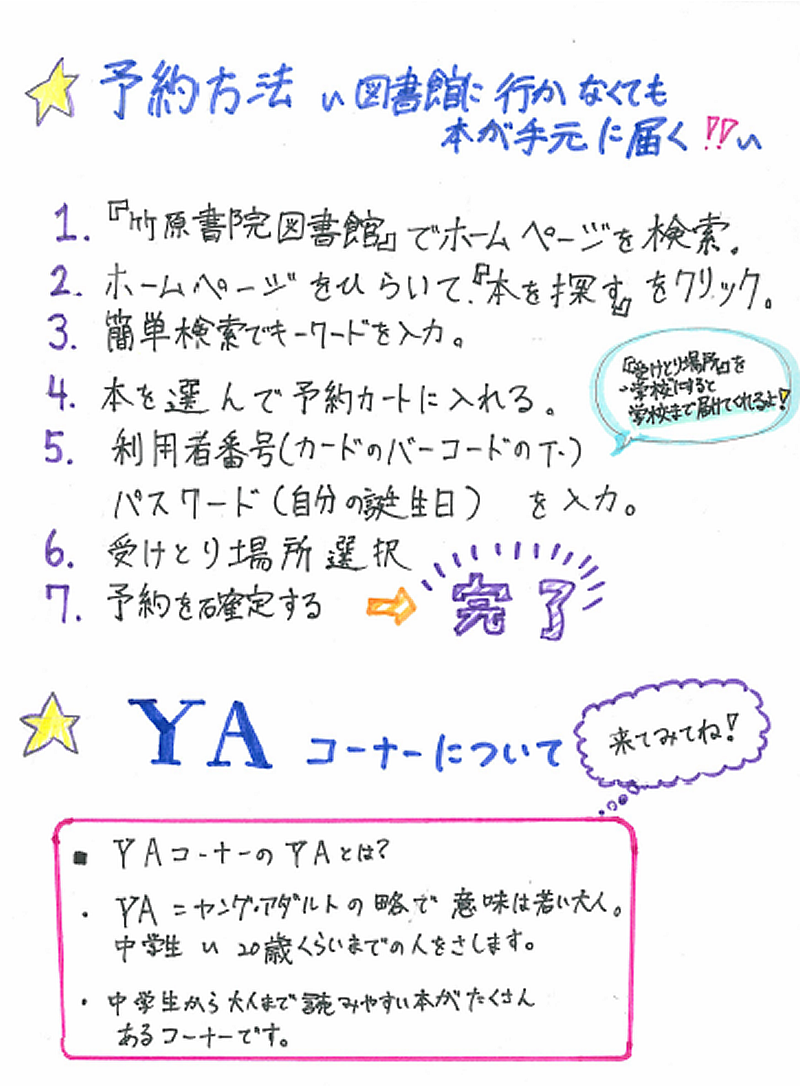 予約方法 〜図書館に行かなくても
本が手元に届く!!〜
1. 『竹原書院図書館』でホームページを検索。
2. ホームページをひらいて、『本を探す』をクリック。
3. 簡単検索でキーワードを入力。
『受けとり場所』を
学校にすると
学校まで届けてくれるよ!
4. 本を選んで予約カートに入れる。
5. 利用者番号(カードのバーコードの下)
パスワード(自分の誕生日) を入力。
6. 受けとり場所選択
7. 予約を確定する ⇨ 完了
YA コーナーについて
来てみてね!
■ YAコーナーのYAとは?
・ YA=ヤング・アダルトの略で 意味は若い大人。
中学生 〜 20歳くらいまでの人をさします。
・ 中学生から大人まで読みやすい本がたくさん
あるコーナーです。